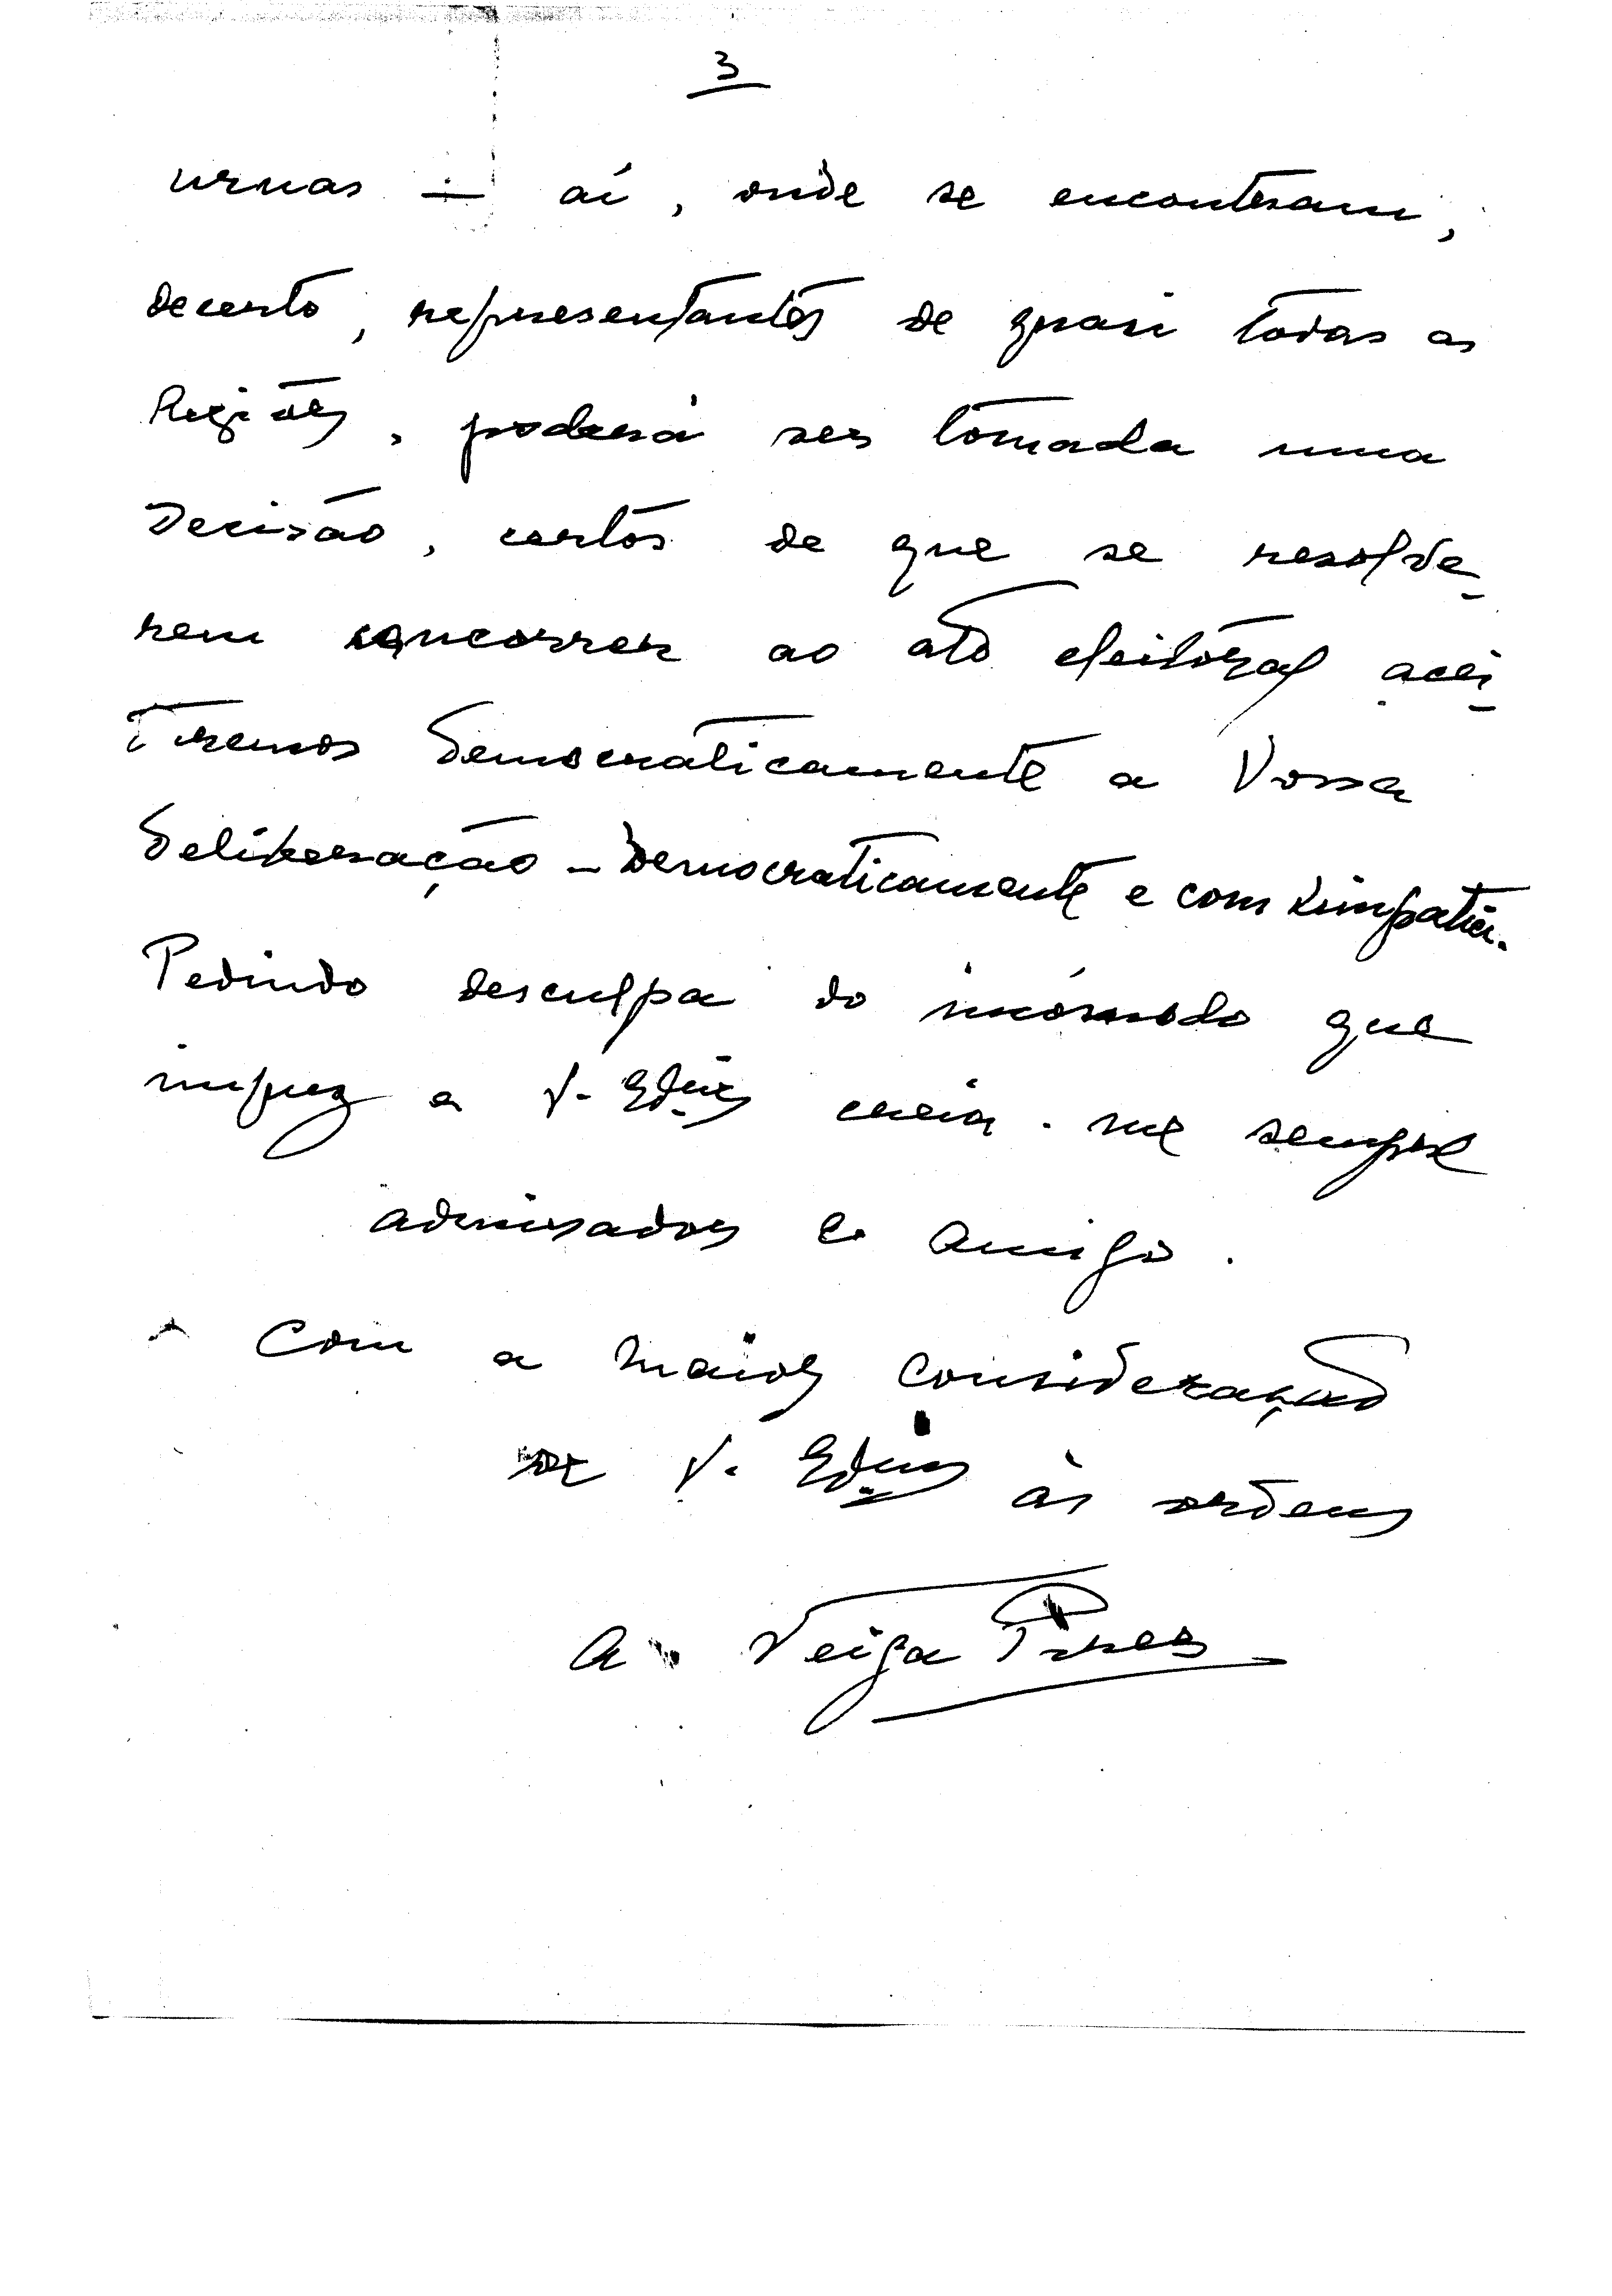 3
urnas — aí, onde se encontram,
decerto, representantes de quasi todas as
Regiões, poderá ser tomada uma
decisão, certos de que se resolve-
rem concorrer ao ato eleitoral acei-
tremos democraticamente a Vossa
deliberação – democraticamente e com simpatia.
Pedindo desculpa do incómodo que
impuz a V. creia-me sempre
admirador e amigo.
Com a maior consideração
de V. às ordens
A. Veiga Pires